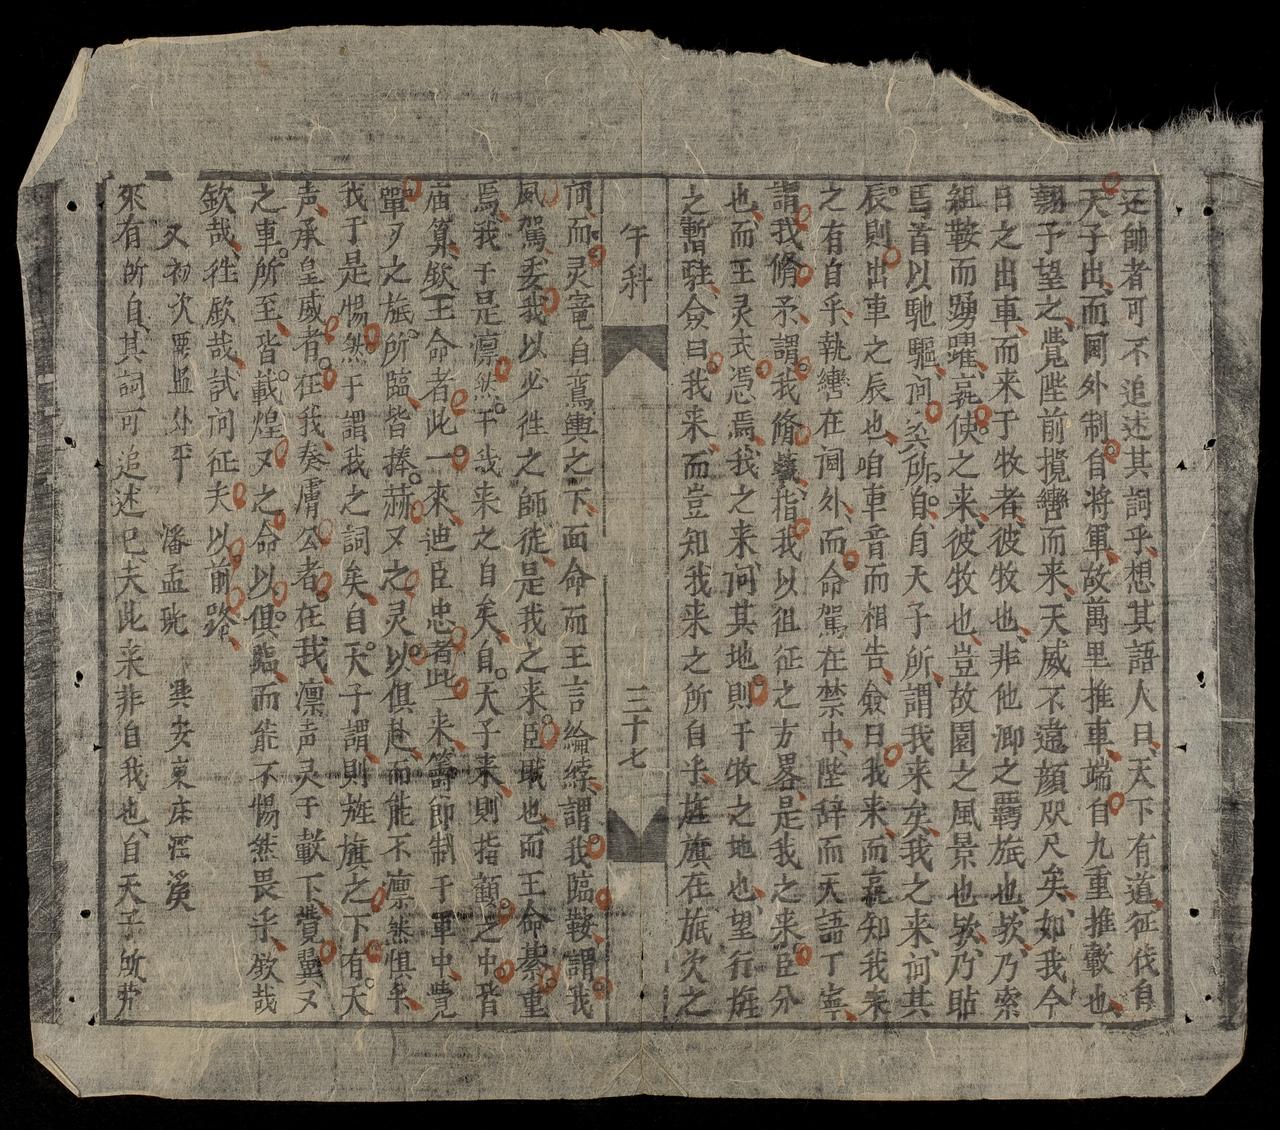 还帥者可不追述其詞乎想其語人曰天下有道征伐自
天子出而閫外制自將軍故萬里推車端自九重推轂也
翹予望之覺陛前攬轡而来天威不遠顔咫尺矣如我今
日之出車而来于牧者彼牧也非他卿之羇旅也欤乃索
組鞍而踴躍㒵使之来彼牧也豈故園之風景也欤乃貼
馬首以馳驅问奚所自自天子所謂我来矣我之来问其
辰則出車之辰也咱車音而相告僉曰我来而寔知我来
之有自乎執轡在閫外而命駕在禁中陛辞而天語丁寧
謂我脩矛謂我脩戟指我以徂征之方畧是我之来臣分
也而王灵式憑焉我之来问其地則于牧之地也望行旌
之暫駐僉曰我来而豈知我来之所自乎旌旗在旅次之
午科
三十七
间而灵寵自鸞輿之下面命而王言綸綍謂我臨鞍謂我
夙駕委我以必徃之師徒是我之来臣職也而王命綦重
焉我于是凛然于我来之自矣自天子来則指顧之中皆
庙算欽王命者此一來迪臣忠者此一来籌即制于軍中覺
單歹之旅所臨皆捧赫又之灵以俱赴而能不凛然惧乎
我于是惕然于謂我之詞矣自天子謂則旌旗之下有天
声承皇威者在我奏膚公者在我凛声灵于載下覺翼又
之車所至皆載煌又之命以俱臨而能不惕然畏乎欽哉
欽哉徃欽哉試问征夫以前路
又初次覆孟外平 潘孟珖 興安東床涇溪
來有所自其詞可追述巳夫此来非自我也自天子所